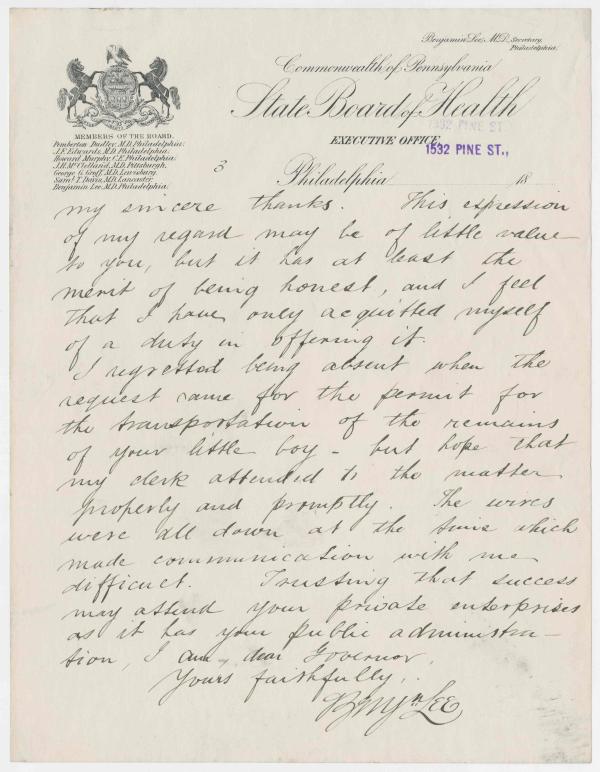 Benjamin Lee, M.D. Secretary,
Philadelphia.
Commonwealth of Pennsylvania
State Board of Health
1532 PINE ST
EXECUTIVE OFFICE
1532 PINE ST.,
MEMBERS OF THE BOARD.
Pemberton Dudley, M.D. Philadelphia.
J.F. Edwards, M.D. Philadelphia.
Howard Murphy, C.E. Philadelphia.
J.H. McClelland, M.D. Pittsburgh.
George G. Groff, M.D. Lewisburg.
Saml. T. Davis, M.D. Lancaster.
Benjamin Lee, M.D. Philadelphia.
3
Philadelphia 18
my sincere thanks. This expression
of my regard may be of little value
to you, but it has at least the
merit of being honest, and I feel
that I have only acquitted myself
of a duty in offering it.
I regretted being absent when the
request came for the permit for
the transportation of the remains
of your little boy - but hope that
my clerk attended to the matter
properly and promptly. The wires
were all down at the time which
made communication with me
difficult. Trusting that success
may attend your private enterprises
as it has your public administra-
tion, I am, dear Governor,
Yours faithfully,
Benjn Lee